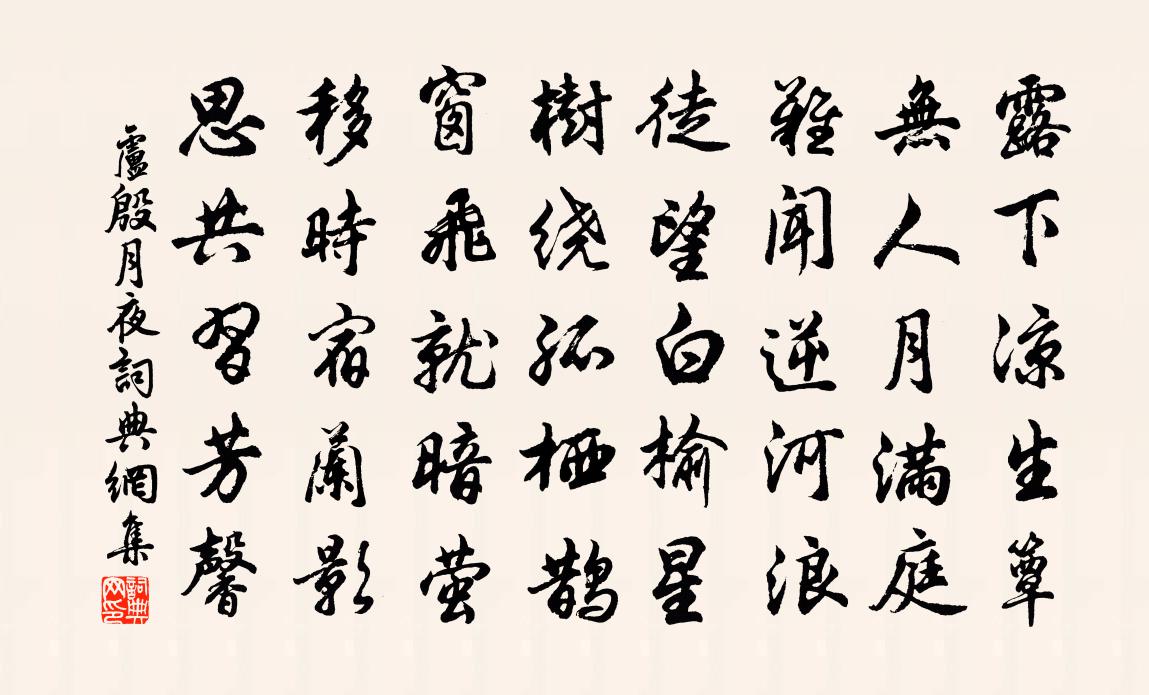 露下凉生簟
無人月满庭
難聞逆河浪
徒望白榆星
樹绕孤栖鹊
窗飛就暗萤
移時宿蘭影
思共習芳馨
盧殷月夜詞典網集
詞典网印